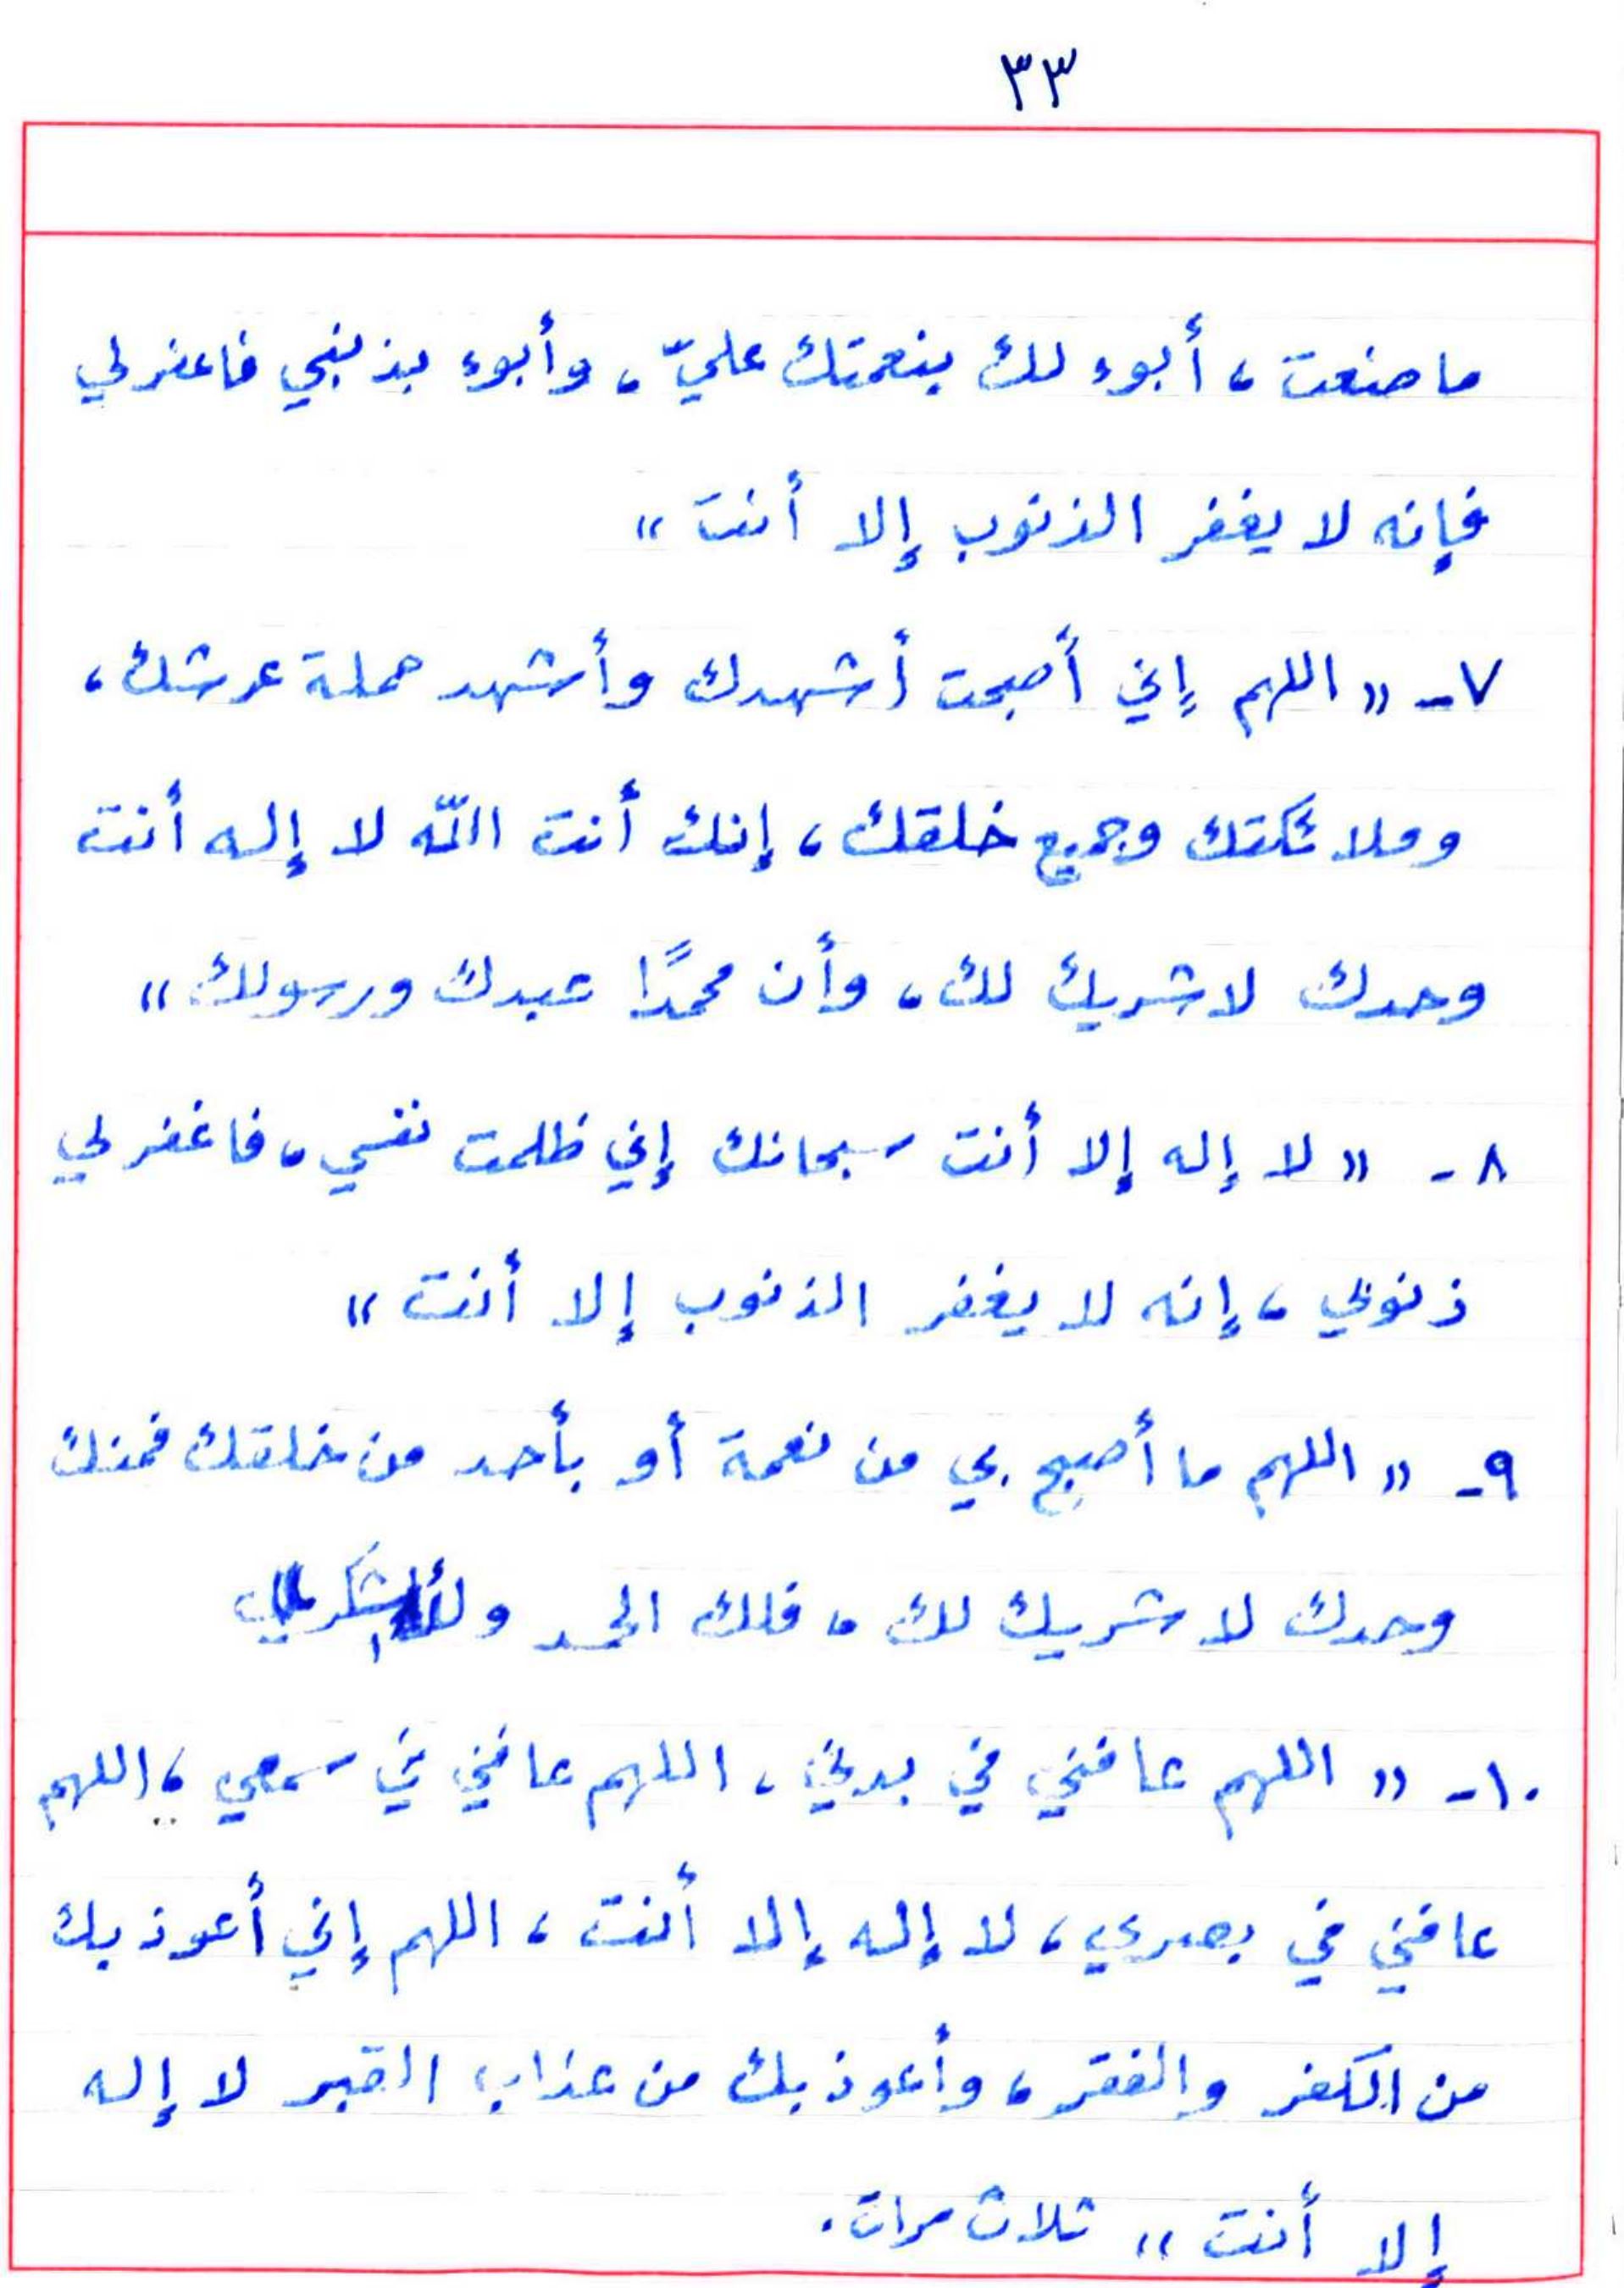 ٣٣
ما صنعت، أبوء لك بنعمتك عليّ، وأبوء بذنبي فاغفر لي
فإنه لا يغفر الذنوب إلا أنت"
٧- "اللهم إني أصبحت أشهدك وأشهد حملة عرشك،
وملائكتك وجميع خلقك، إنك أنت اللّه لا إله أنت
وحدك لا شريك لك، وأن محمدًا عبدك ورسولك"
٨- "لا إله إلا أنت سبحانك إني ظلمت نفسي، فاغفر لي
ذنوبي، إنه لا يغفر الذنوب إلا أنت"
٩- "اللهم ما أصبح بي من نعمة أو بأحد من خلقك فمنك
وحدك لا شريك لك، فلك الحمد
١٠- "اللهم عافني في بدني، اللهم عافني في سمعي، اللهم
عافني في بصري، لا إله إلا أنت، اللهم إني أعوذ بك
من الكفر والفقر، وأعوذ بك من عذاب القبر لا إله
إلا أنت" ثلاث مرات.